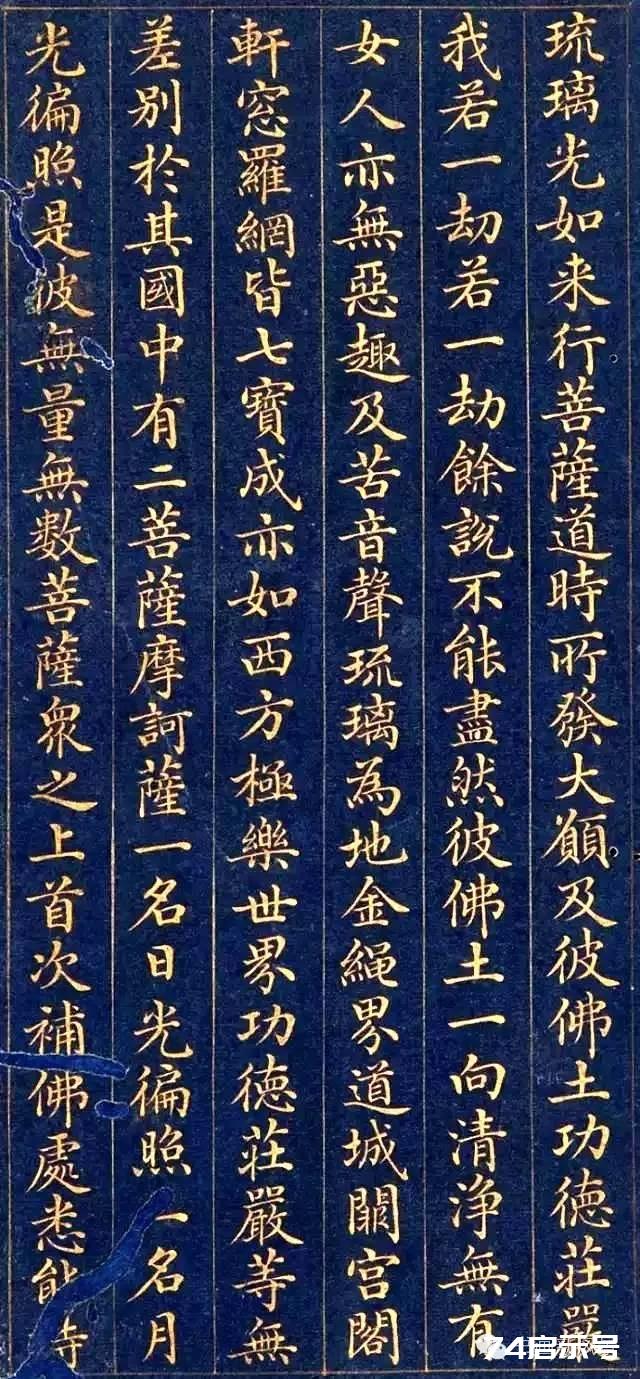 琉璃光如来行菩薩道時所發大願及彼佛土功德莊嚴
我若一劫若一劫餘說不能盡然彼佛土一向清淨無有
女人亦無惡趣及苦音聲琉璃為地金繩界道城闕宮閣
軒窓羅網皆七寶成亦如西方極樂世界功德莊嚴等無
差別於其國中有二菩薩摩訶薩一名日光徧照一名月
光徧照是彼無量無數菩薩眾之上首次補佛處悉能持
74启东号